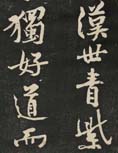 漢世青紫
獨好道而